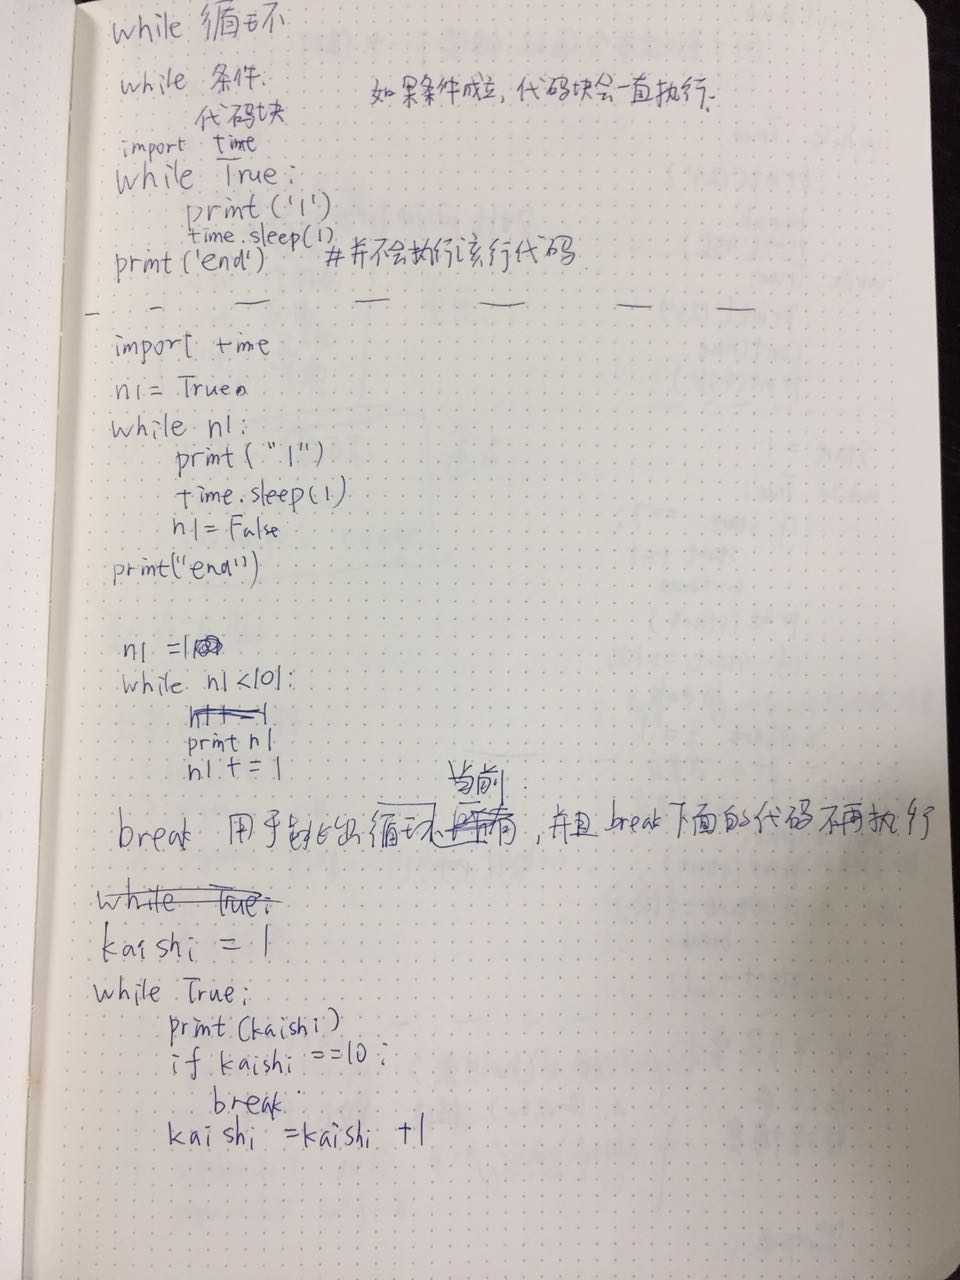 while 循环
while 条件:
如果条件成立, 代码块会一直执行.
代码块
import time
while True:
print('1')
time.sleep(1)
print('end') #并不会执行该行代码
import time
n1 = True
while n1:
print("1")
time.sleep(1)
n1 = False
print("end")
n1 = 1
while n1 <101:
n1 += 1
print n1
n1 += 1
当前
break 用于跳出循环所有, 并且 break 下面的代码不再执行
while True:
kaishi = 1
while True:
print(kaishi)
if kaishi ==10:
break
kaishi =kaishi +1